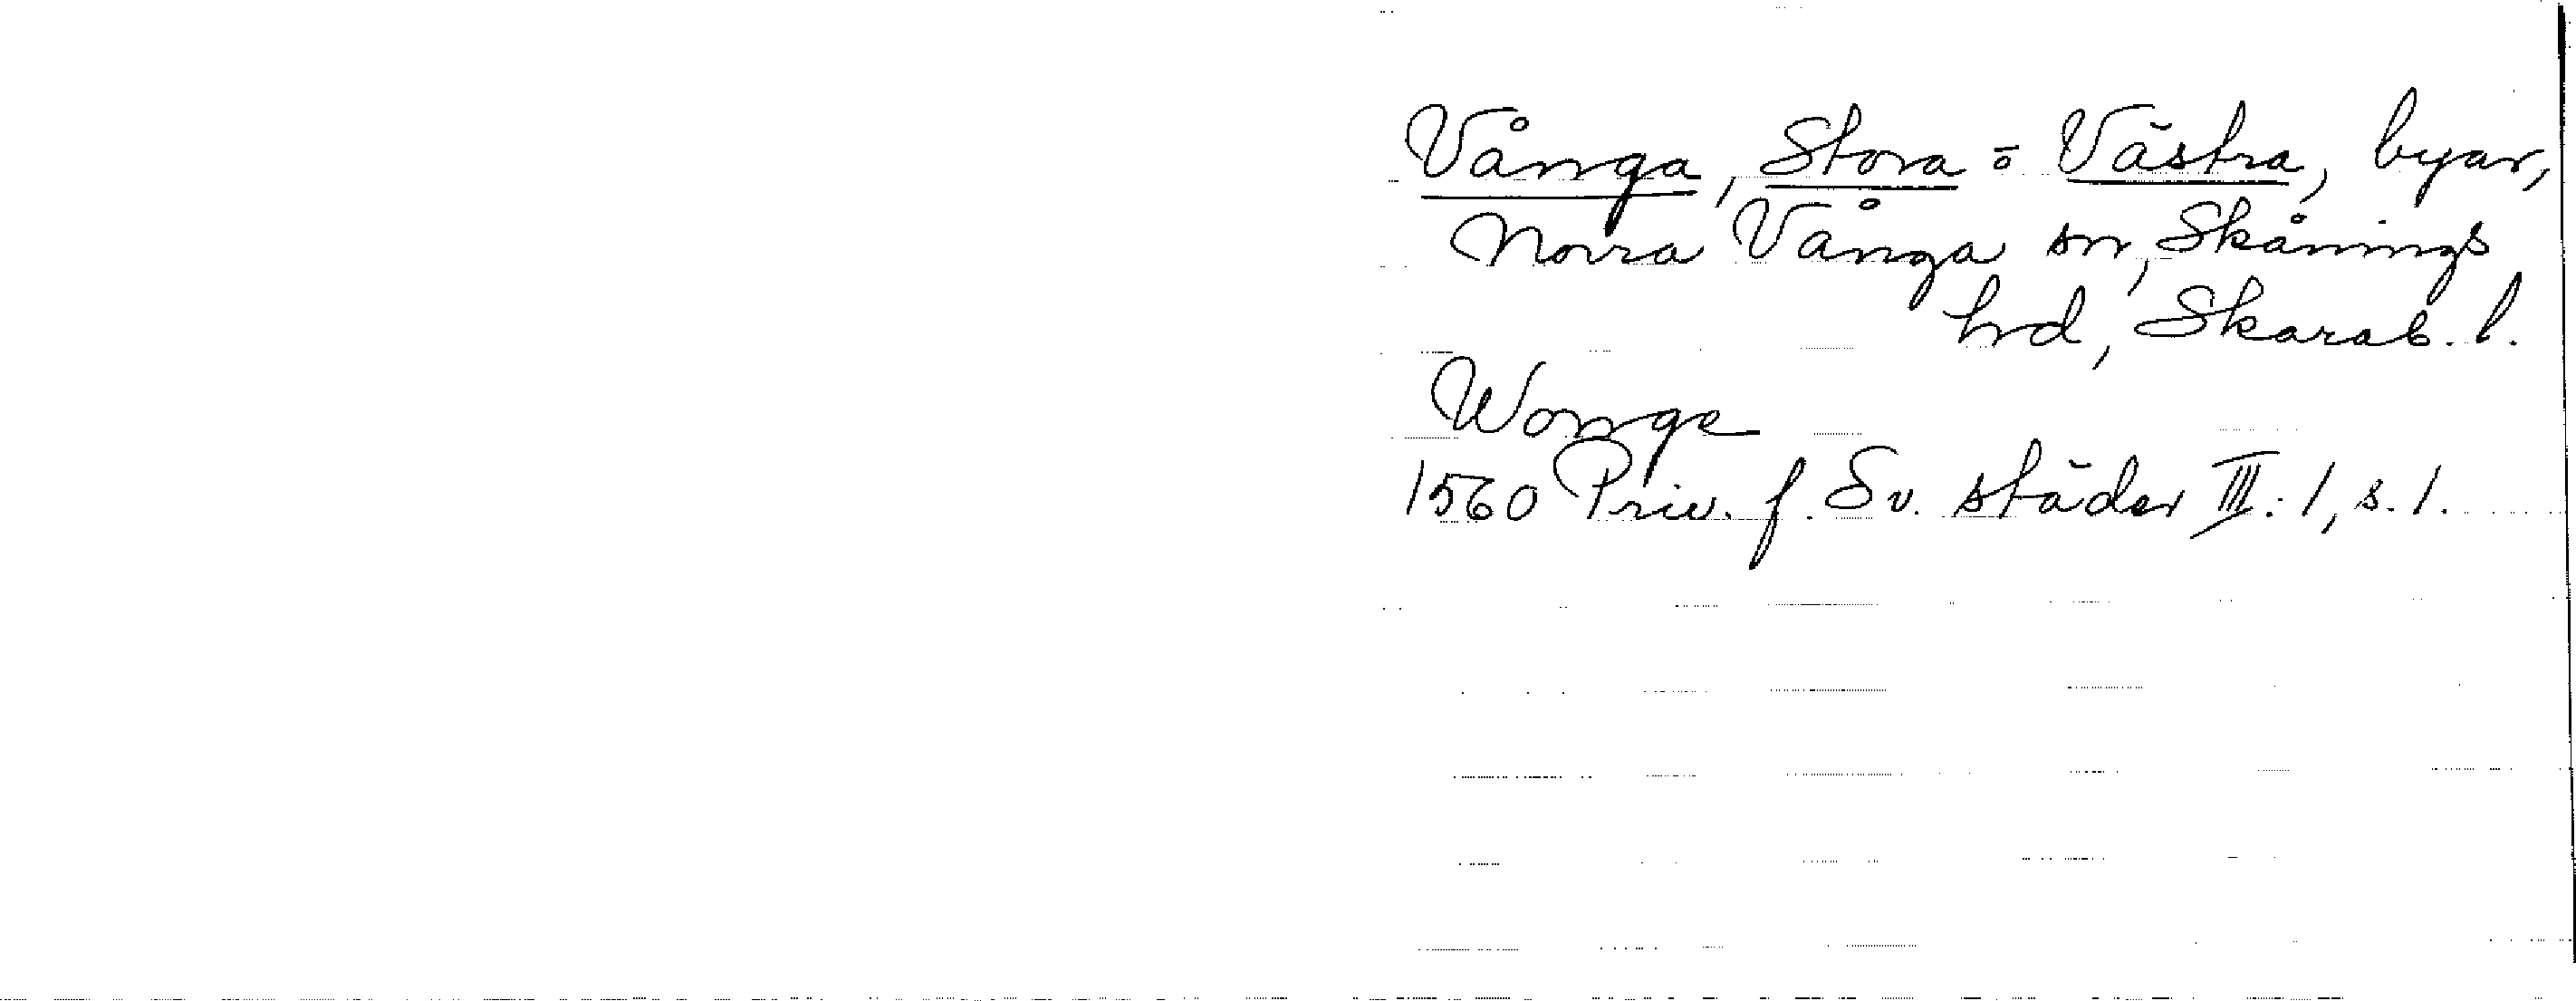 Vånga, Stora o Västra, byar,
Norra Vånga sn, Skånings
hrd, Skarab. l.
Wonge
1560 Priv. f. Sv. städer III: 1, s. 1.